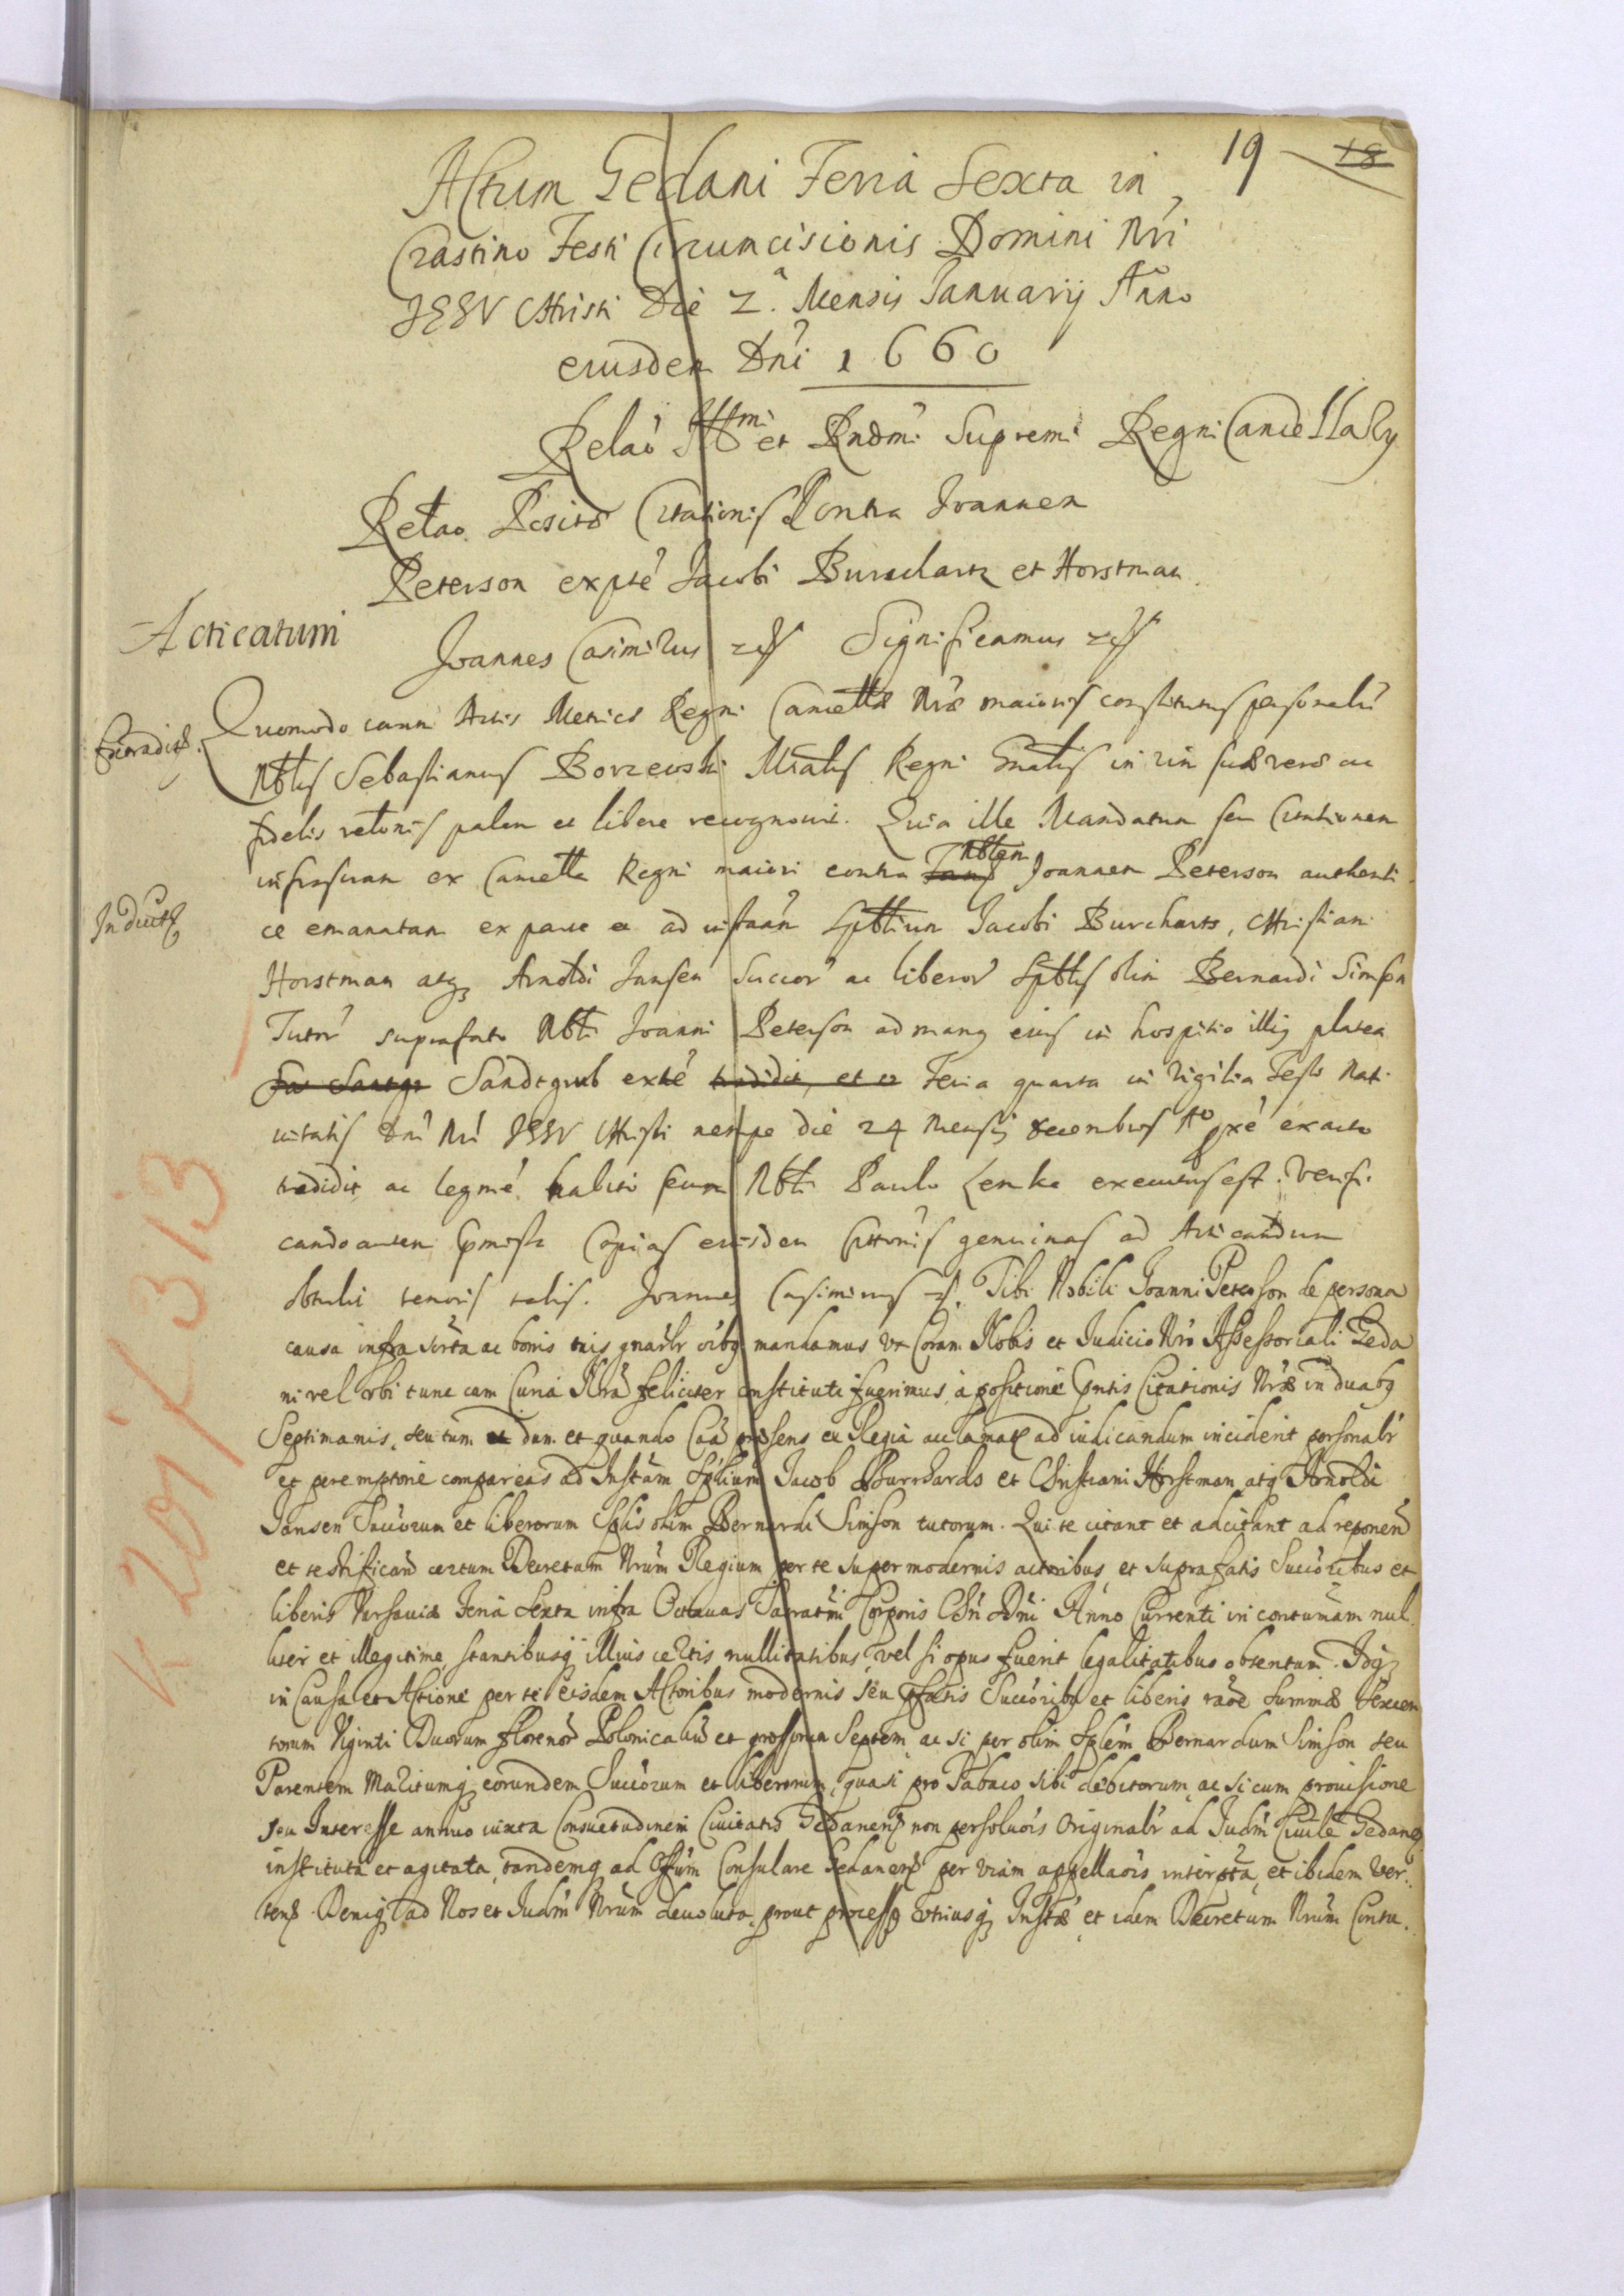 19 18
Actum Gedani Feria Sexta in
Crastino Festi Circumcisionis Domini Nri
JESV Christi Die 2.ª Mensis Januarij Anno
eiusdem Dni 1660
Relaõ Illmi et Rndmi Supremi Regni Cancellary
Relao Positæ Citationis Contra Joannem
Peterson ex pte Jacobi Burchartz et Horstman
Acticatum
Joannes Casimirus Significamus
Quomodo coram Actis Metrices Regni Cancellæ Nræ maioris constitutus personalr
Extradit.
Nblis Sebastianus Borzewski Mtalis Regni Gnalis in vim suæ veræ ac
fidelis relonis palam et libere recognovit. Quia ille Mandatum seu Citationem
infrascram ex Cancella Regni maiori contra Nblem Joannem Peterson authenti
Induct
ce emanatam ex parte et ad instaam Spblium Jacobi Burcharts, Christiani
Horstman atq Arnoldi Jansen Succor ac liberor Spblis olim Bernardi Simson
Tutor suprafato Nbli Joanni Peterson ad manq eius in hospitio illiq platea
Sandtgrub exte tradidit, et Feria quarta in Vigilia Festi Nati
uitatis Dni Nri JESV Christi nempe die 24 Mensis Decembris Aº pxe exacto
tradidit ac legme habito secum Nbli Paulo Lemke executus est. Verifi
cando autem pmissa Copias eiusdem Citonis genuinas ad Acticandum
obtulit tenoris talis. Joannes Casimirus Tibi Nobili Joanni Peterson de persona
causa infra scrta ac bonis tuis gnalr oibq mandamus vt Coram Nobis et Judicio Nro Assessoriali Geda
ni vel vbi tunc cum Curia Nra feliciter constituti fuerimus, à positione pntis Citationis Nræ in duabq
Septimanis, seu tum dum et quando Caa præsens ex Regia acclamata ad iudicandum inciderit personalr
et peremptorie compareas ad Instam Spblium Jacob Burchards et Christiani Horstman atq Arnoldi
Jansen Succorum et liberorum Spblis olim Bernardi Simson tutorum. Qui te citant et adcitant ad reponend
et testificand certum Decretum Nrum Regium per te super modernis actoribus et suprafatis Succoribus et
liberis Varsauiæ Feria Sexta infra Octauas Sacratmi Corporis Chri Dni Anno Currenti in contumam nul
liter et illegitime stantibusq illius certis nullitatibus, vel si opus fuerit legalitatibus obtentum. Idq
in Causa et Actione per te eisdem Actoribus modernis seu pfatis Succoribq et liberis raõe Summæ Sexcen
torum Viginti Duorum florenor Polonicaliu et grossorum Septem ac si per olim Spblem Bernardum Simson seu
Parentem Maritumq eorundem Succorum et liberorum, quasi pro Tabaco sibi debitorum, ac si cum prouisione
seu Interesse annuo iuxta Consuetudinem Ciuitatis Gedanens non persoluois Originalr ad Judm Ciuile Gedanens
instituta et agitata, tandemq ad Offum Consulare Gedanens per viam appellaois interpta, et ibidem Ver
tens. Deniq ad Nos et Judm Nrum deuoluta, prout processq Vtriusq Instæ et idem Decretum Nrum Contu.
K 201/313